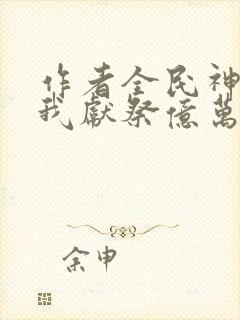 作者全民神
我獻祭億萬
余申